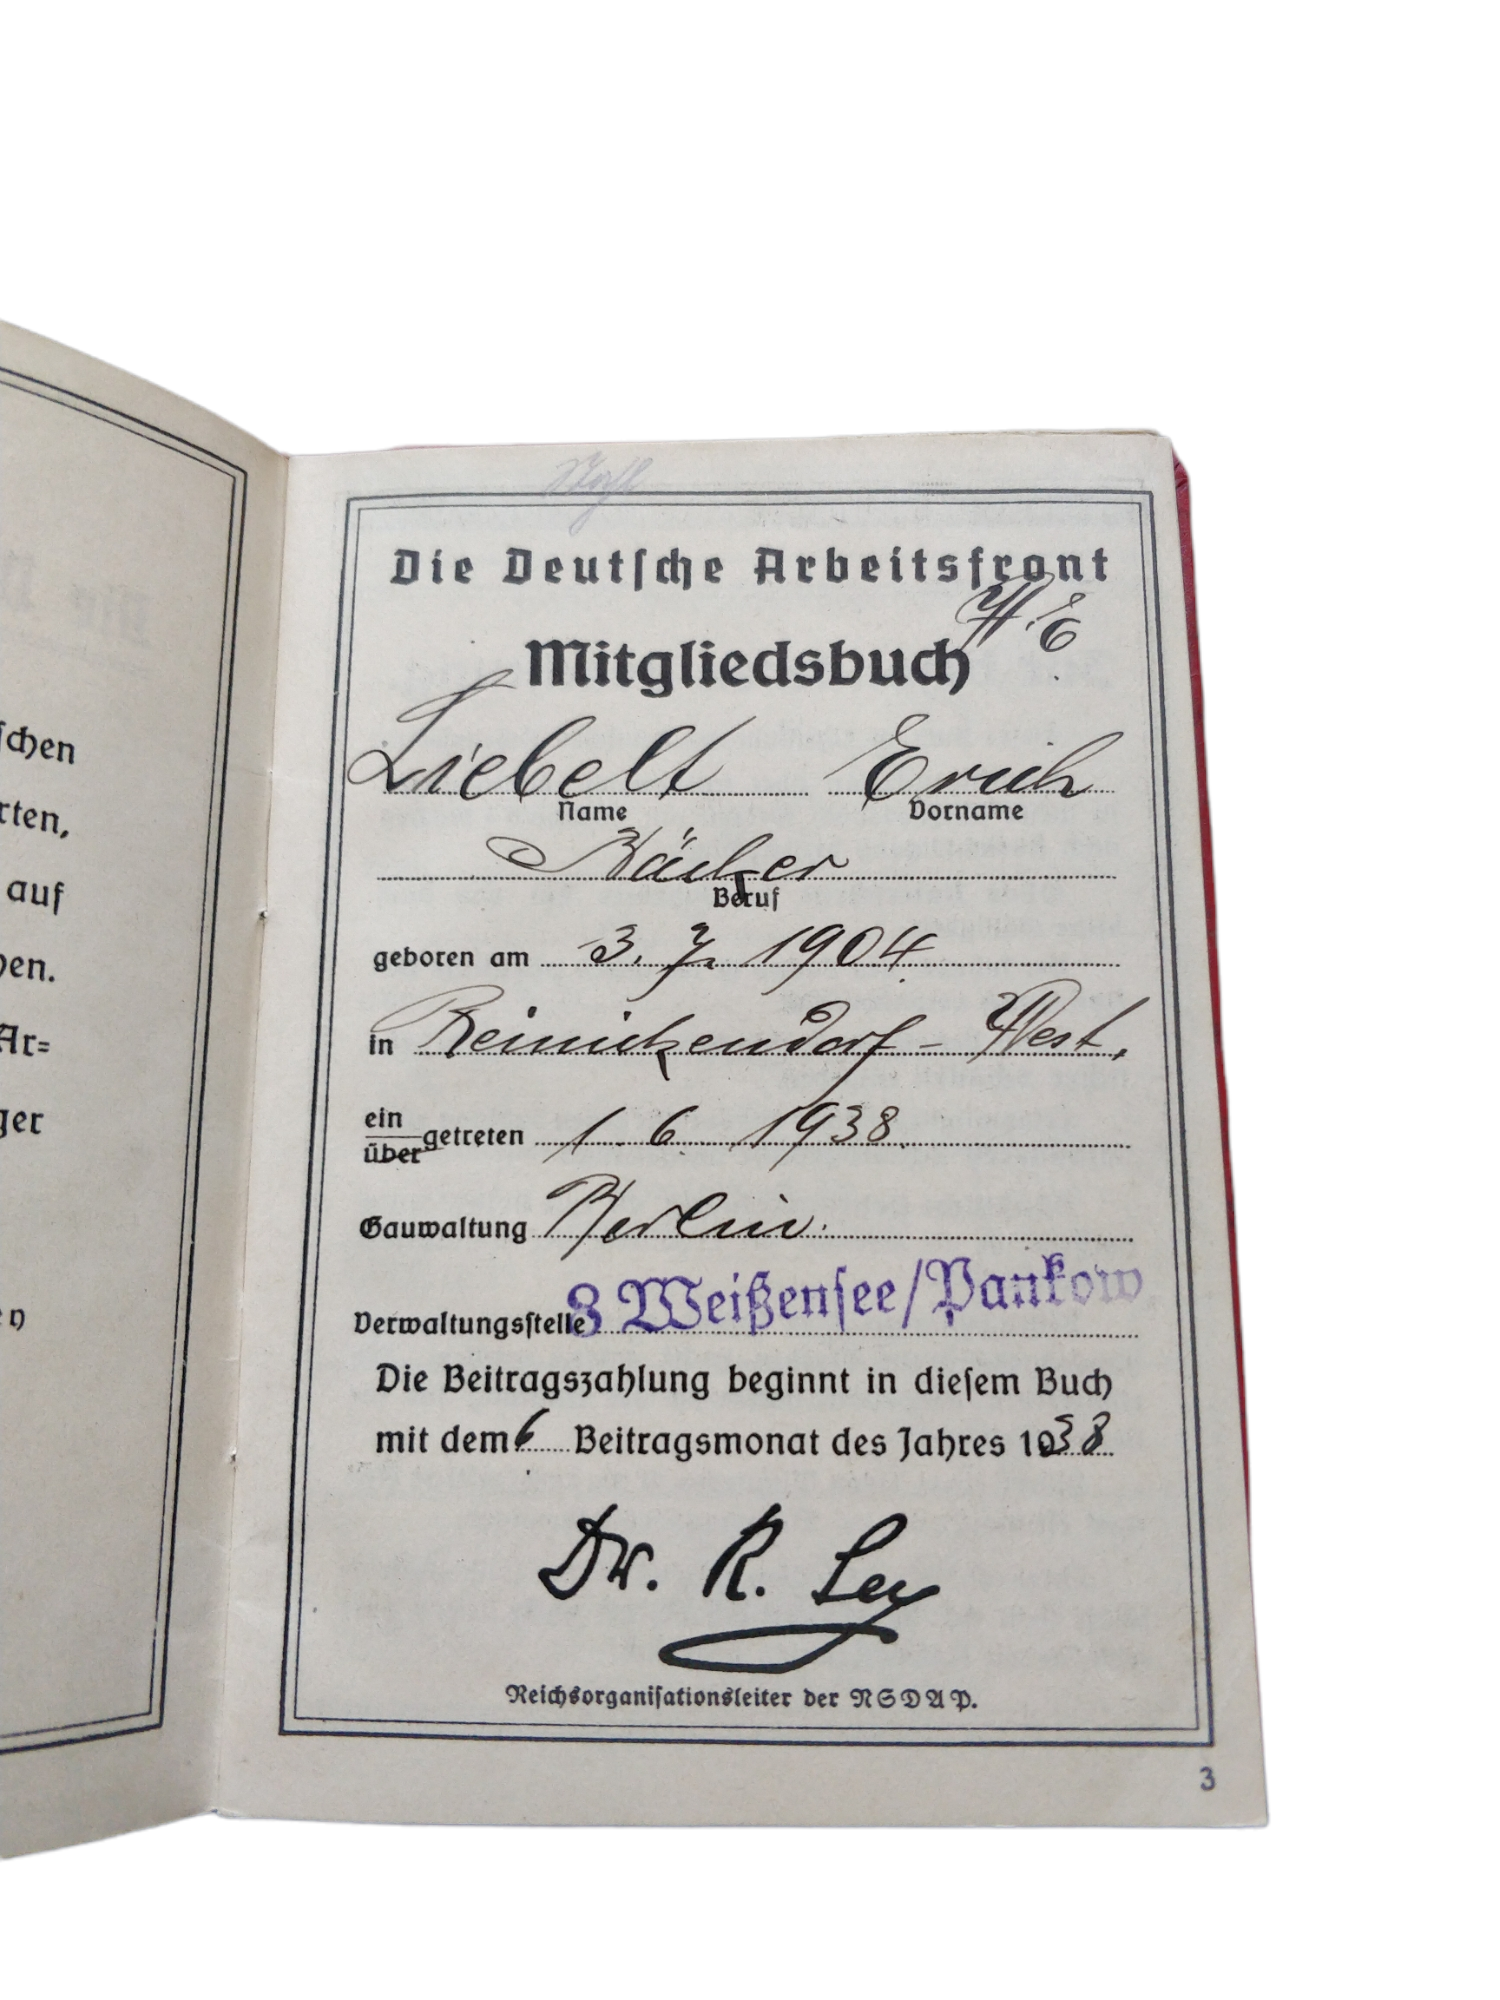 schen
rten,
auf
en.
Ar=
ger
en
Die Deutsche Arbeitsfront
W. E.
Mitgliedsbuch
Liebelt Erich
Name Vorname
Bäcker
Beruf
geboren am 3. 7. 1904.
in Reinickendorf - West.
ein
über getreten 1. 6. 1938.
Gauwaltung Berlin.
Verwaltungsstelle 8 Weißensee/Pankow
Die Beitragszahlung beginnt in diesem Buch
mit dem 6 Beitragsmonat des Jahres 1938
Dr. R. Ley
Reichsorganisationsleiter der NSDAP.
3